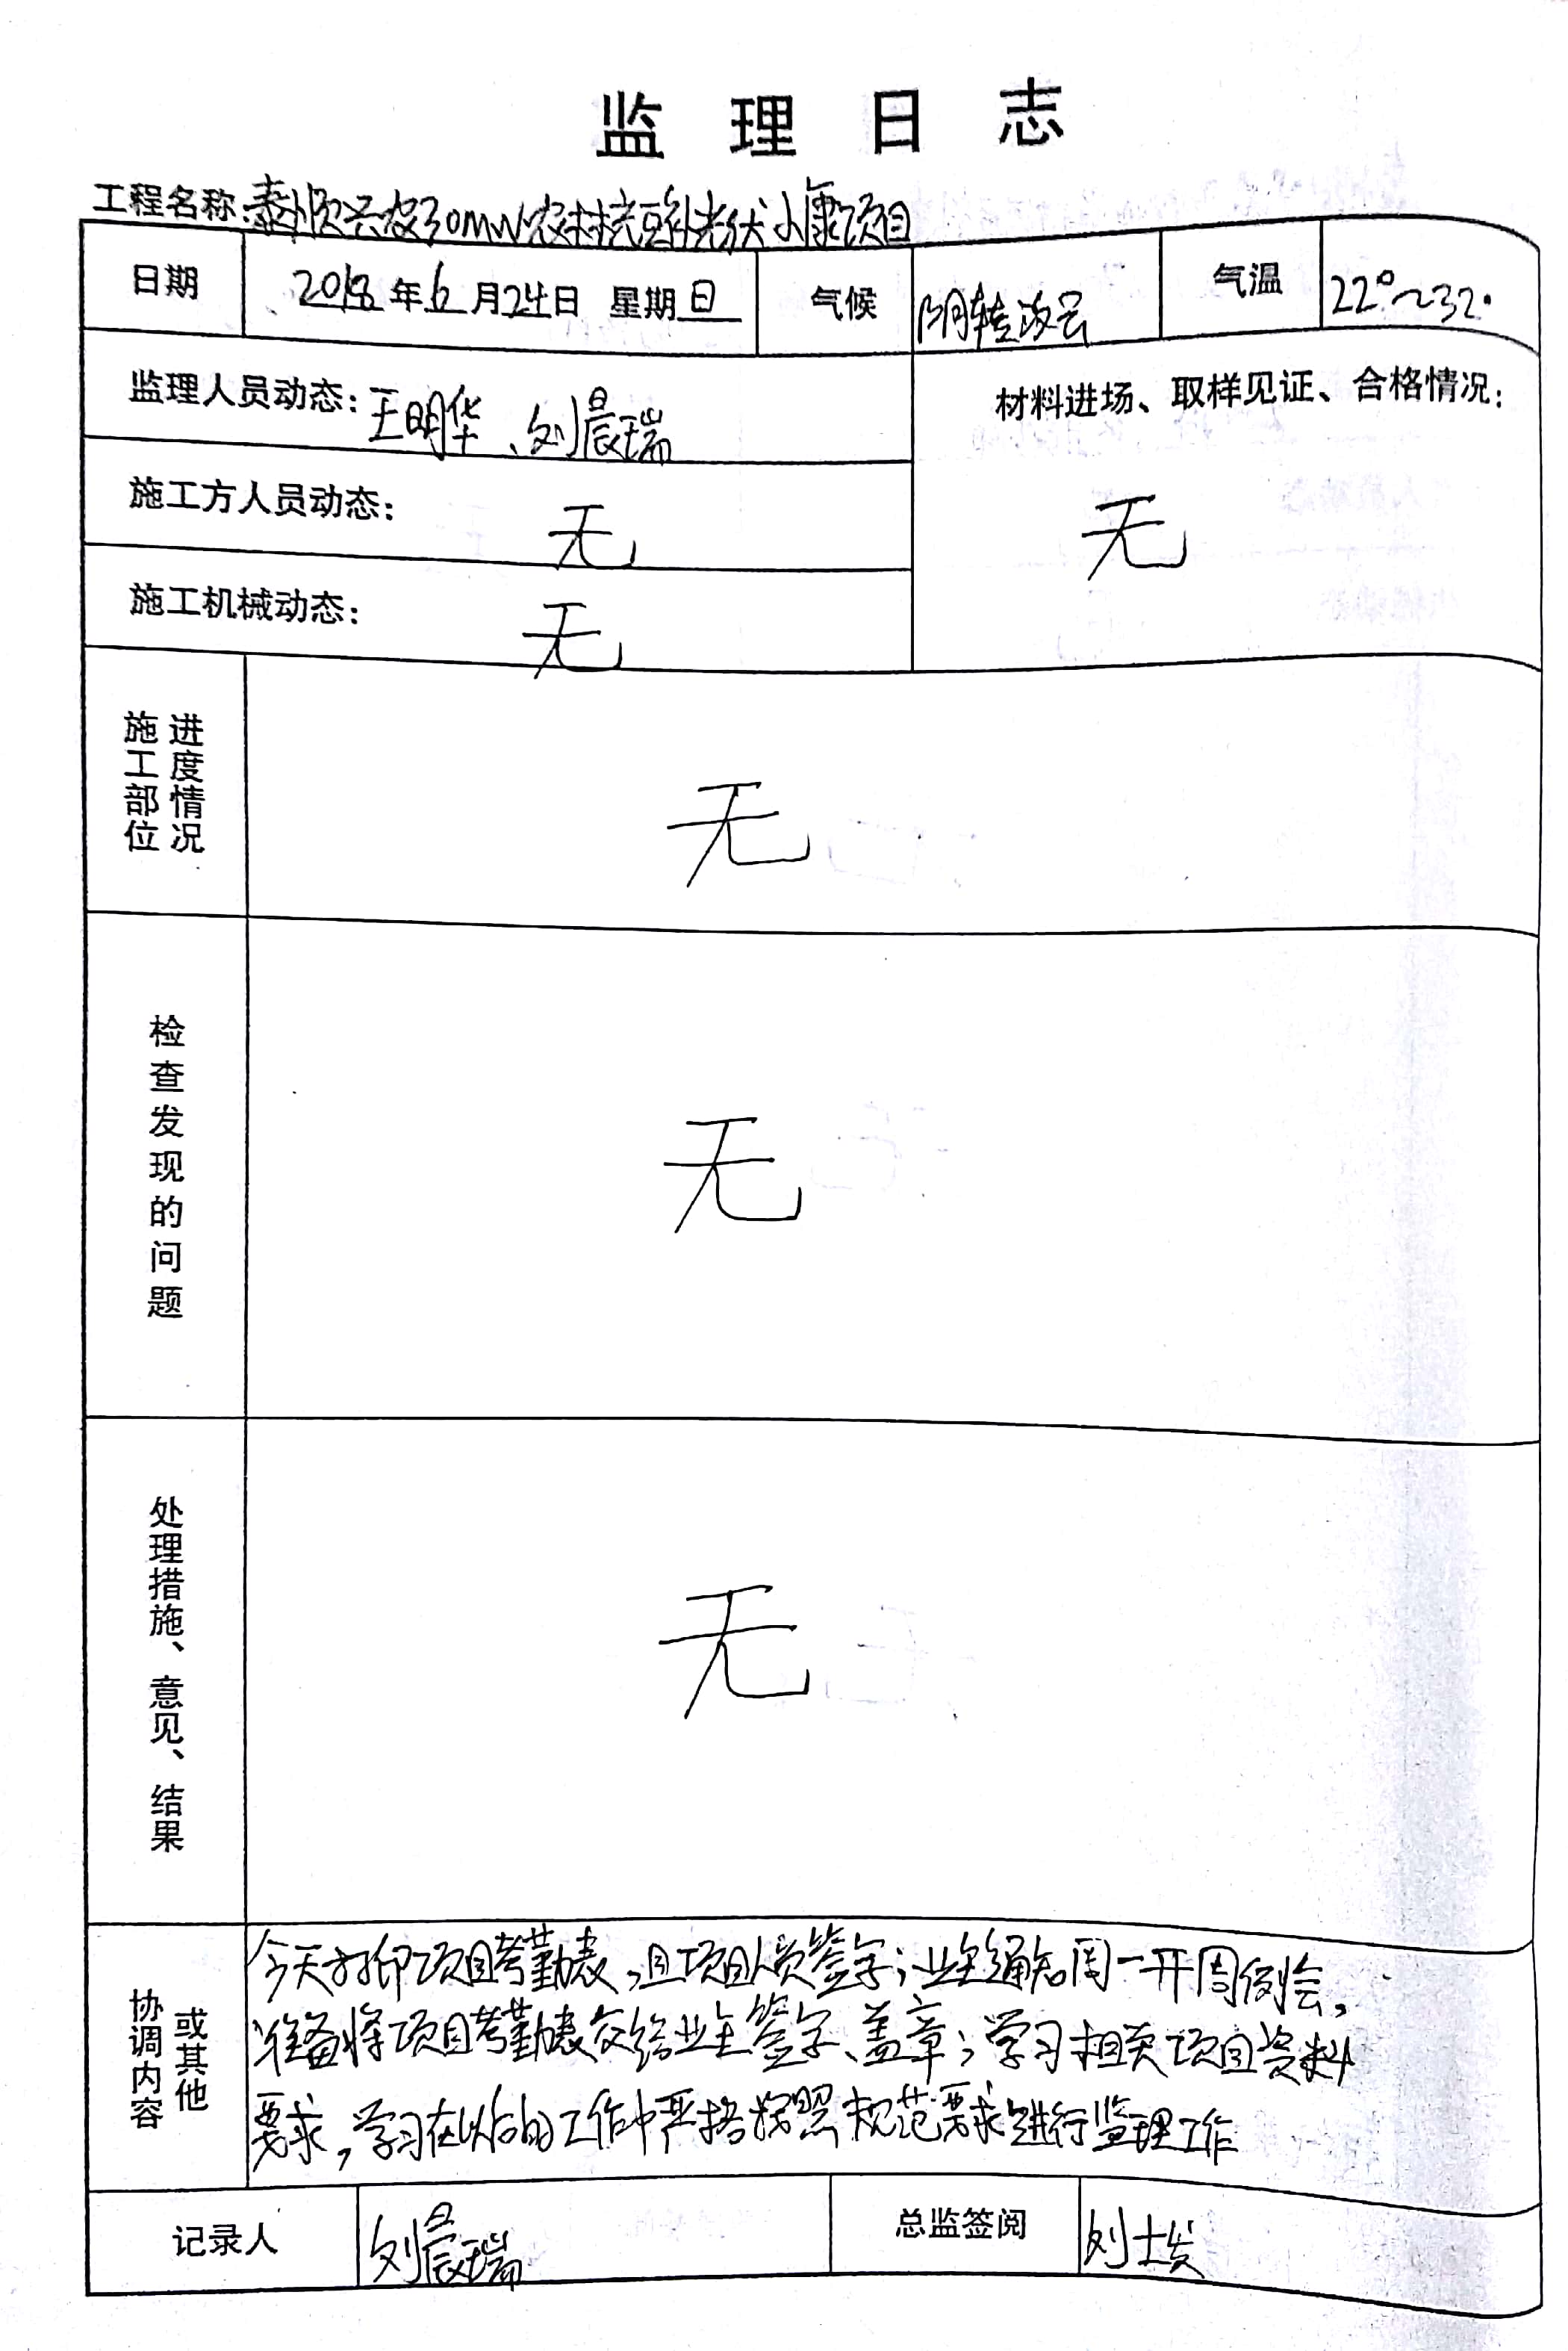 监理日志
工程名称:泰顺兴农30MW农林光互补光伏小康项目
日期 2018年6月24日 星期日 气候 阴转多云 气温 22°~32°
监理人员动态:王明华、刘晨瑞
材料进场、取样见证、合格情况:
无
施工方人员动态: 无
施工机械动态: 无
施工部位 进度情况 无
检查发现的问题 无
处理措施、意见、结果 无
协调内容 或其他
今天打印项目考勤表,且项目人员签字;业主通知周一开周例会,
准备将项目考勤表交给业主签字、盖章;学习相关项目资料
要求,学习在以后的工作中严格按照规范要求进行监理工作
记录人 刘晨瑞 总监签阅 刘士发